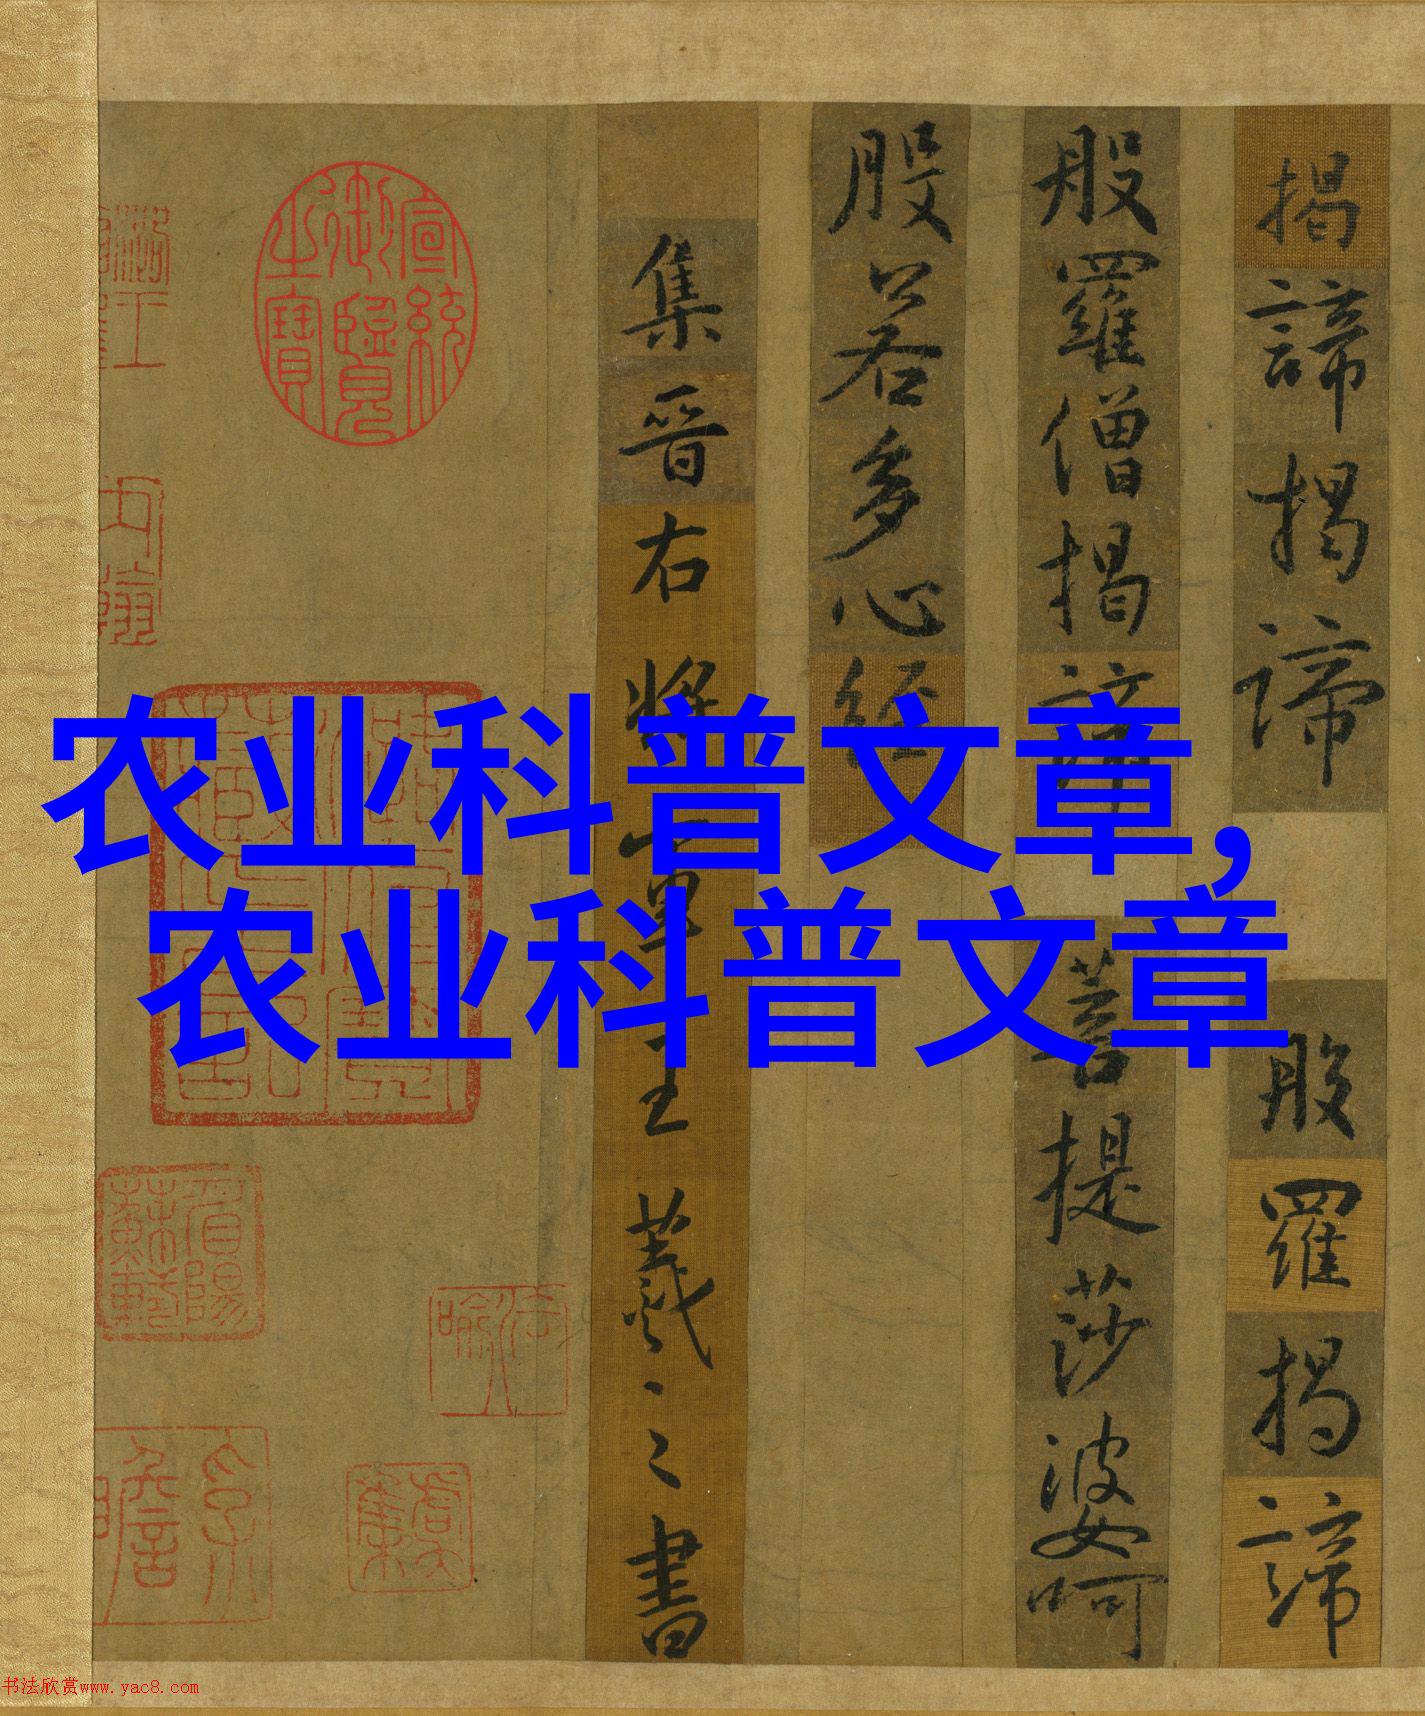 农业科普文章,
农业科普文章
揭諦揭諦
般羅揭諦
般羅僧揭諦
菩提莎婆呵
般若多心經
集晉右將軍王羲之書
宣統御覽之寶
书法欣赏www.yac8.com